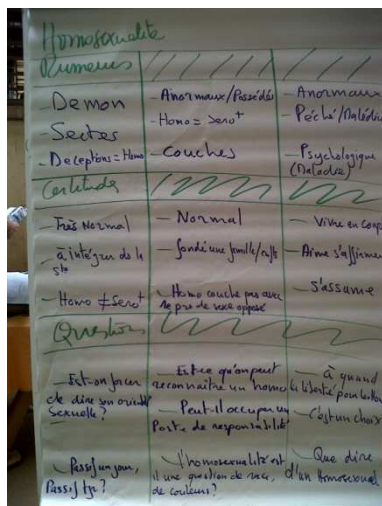 Homosexualité
Rumeurs
- Demon
- Sectes
- Deceptions = Homo
- Anormaux/Possédés
- Homo = sero+
- Couches
- Anormaux
- Péché/Malédic
- Psychologique
(Maladie)
Certitude
- Très Normal
- à intégrer ds la
sté
- Homo ≠ Sero+
- Normal
- fonder une famille/
- Homo couche pas avec
le pro de sexe opposé
- Vivre en coup
- Aime s'affirmer
- s'assume
Questions
- Est-on forcer
de dire son orient
sexuelle?
- Passif un jour,
Passif tjr?
- Est ce qu'on peut
reconnaître un homo
- Peut-il occuper un
Poste de responsabilité
- l'homosexualité est
il une question de race,
de couleurs?
- à quand
la liberté pour les
- C'est un choix
- Que dire
d'un Homosexuel